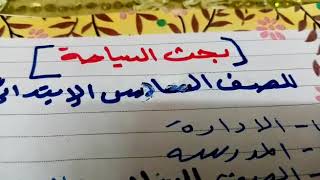 [بحث السياحة]
للصف السادس الإبتدائي
١- الادارة
- المدرسه